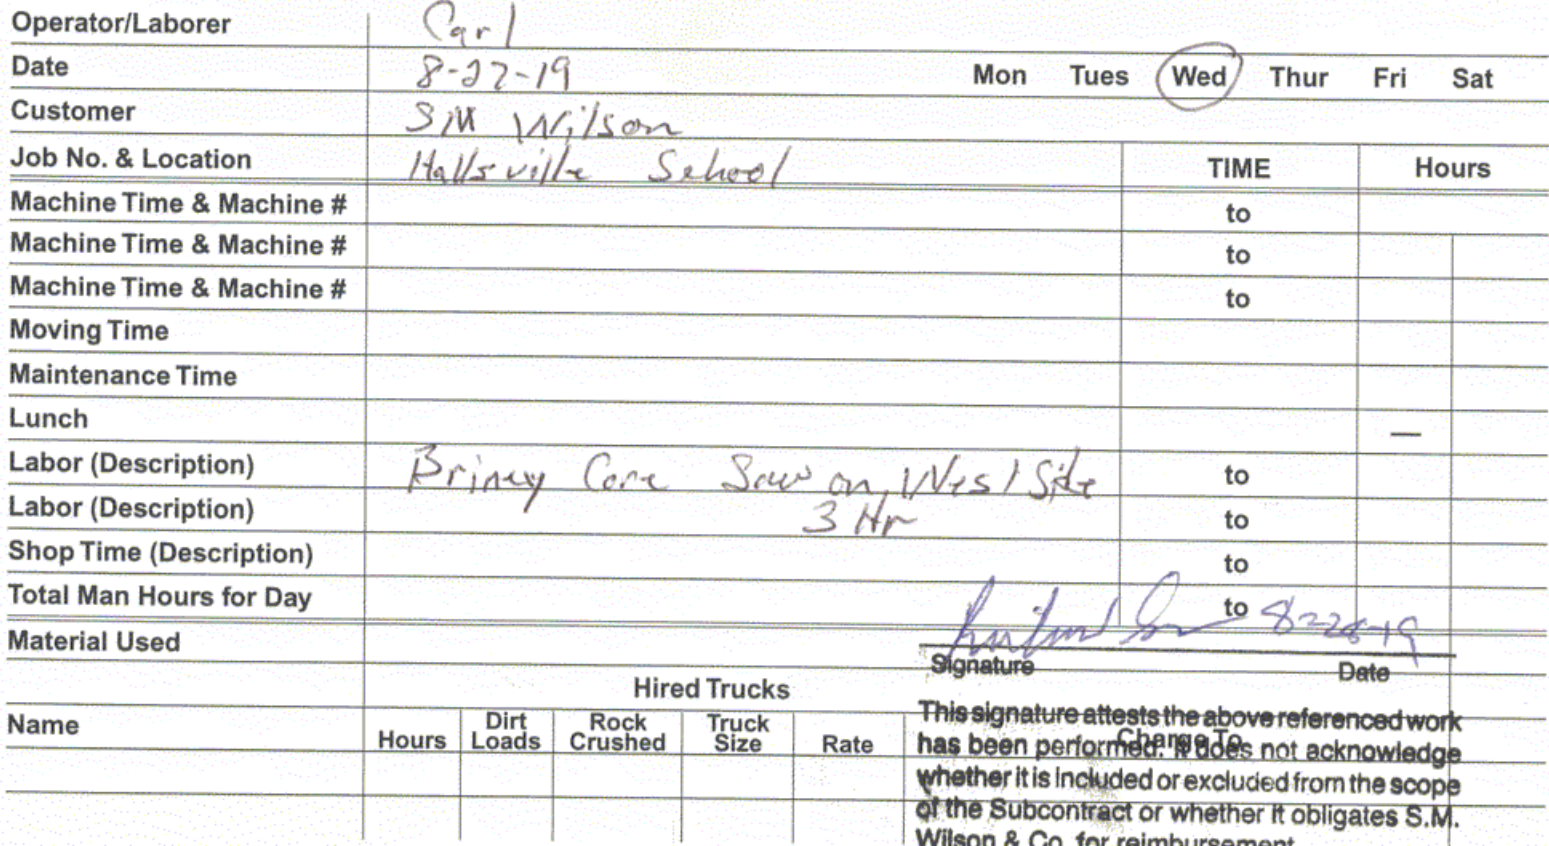 Operator/Laborer Carl
Date 8-22-19 Mon Tues Wed Thur Fri Sat
Customer SM Wilson
Job No. & Location Hallsville School TIME Hours
Machine Time & Machine # to
Machine Time & Machine # to
Machine Time & Machine # to
Moving Time
Maintenance Time
Lunch —
Labor (Description) Briney Core Saw on West Side to
Labor (Description) 3 Hr to
Shop Time (Description) to
Total Man Hours for Day to 8-28-19
Material Used
Signature Date
Hired Trucks
Name Hours Dirt Loads Rock Crushed Truck Size Rate Charge To
This signature attests the above referenced work
has been performed. It does not acknowledge
whether it is included or excluded from the scope
of the Subcontract or whether it obligates S.M.
Wilson & Co. for reimbursement.